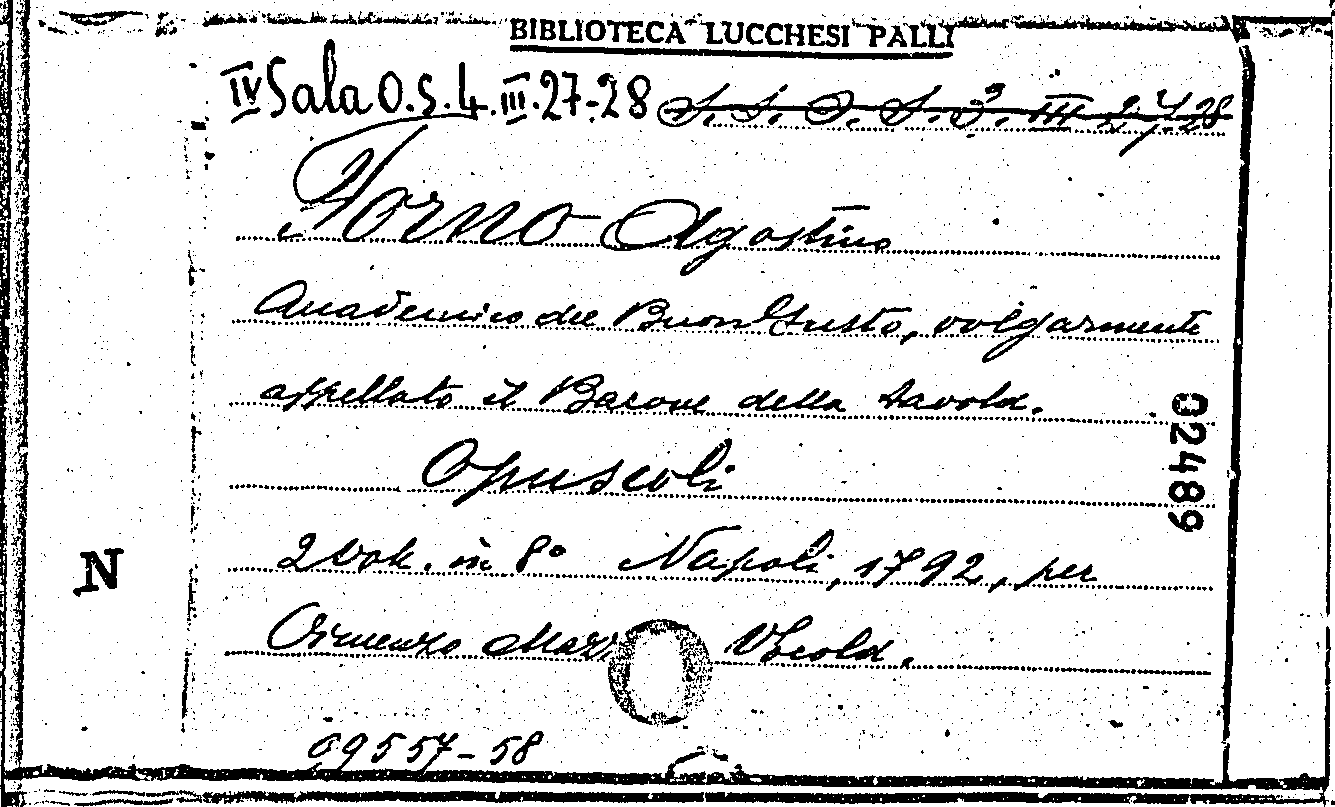 BIBLIOTECA LUCCHESI PALLI
IV Sala O.S.4.III.27-28 S. S. O. S. 3. III 27.28
Forno Agostino
Accademico del Buon Gusto, volgarmente
appellato il Barone della Tavola.
02489
Opuscoli
N
2 vol. in 8° Napoli, 1792, per
69557-58